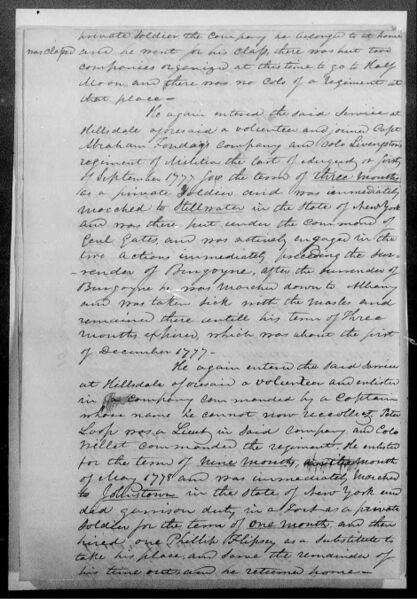 private Soldier the Company he belonged to at home
was classed and he went for his class, there was but two
companies organized at this time to go to Half
Moon and there was no Colo of a regiment at
that place –
He again entered the said Service at
Hillsdale aforesaid a volunteer and joined Capt
Abraham Fondays Company and Colo Livingston
regiment of Militia the last of August or first
of September 1777 for the term of three months
as a private Soldier and was immediately
marched to Stillwater in the State of New York
and was there put under the command of
Genl Gates, and was actively engaged in the
two actions immediately preceding the Sur-
render of Burgoyne, after the surrender of
Burgoyne he was marched down to Albany
and was taken sick with the Masles and
remained there untill his term of Three
months expired, which was about the first
of December 1777–
He again entered the said Service
at Hillsdale aforesaid a volunteer and enlisted
in a company commanded by a Captain
whose name he cannot now recollect, Peter
Loop was a Lieut in said Company and Colo
Willet commanded the regiment. He enlisted
for the term of nine months, month
of May 1778 and was immediately marched
to Johnstown in the State of New York and
did garrison duty in a Fort as a private
Soldier for the term of one month and then
hired one Phillip Flipsey as a Substitute to
take his place, and serve the remainder of
his time out and he returned home –